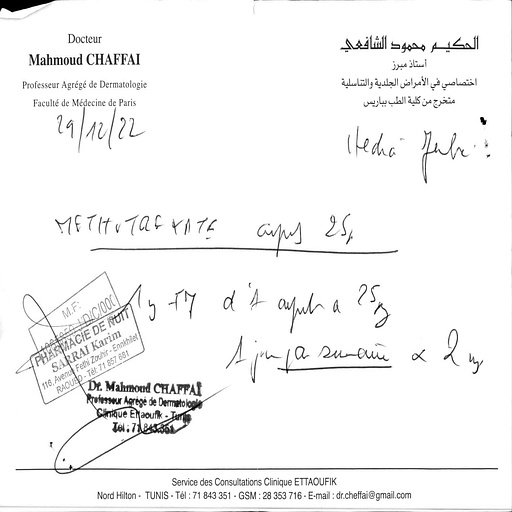 Docteur
Mahmoud CHAFFAI
Professeur Agrégé de Dermatologie
Faculté de Médecine de Paris
29/12/22
الحكيم محمود الشافعي
أستاذ مبرز
اختصاصي في الأمراض الجلدية والتناسلية
متخرج من كلية الطب بباريس
METHOTREXATE 25
d'1 a 25
1 semaine 2
M.F:
PHARMACIE DE NUIT
SARRAI Karim
116, Avenue Fethi Zouhir - Ennkhilet
RAOUED - Tél: 71 857 681
Dr. Mahmoud CHAFFAI
Professeur Agrégé de Dermatologie
Clinique Ettaoufik - Tunis
Tél.: 71 843 351
Service des Consultations Clinique ETTAOUFIK
Nord Hilton - TUNIS - Tél : 71 843 351 - GSM : 28 353 716 - E-mail : dr.cheffai@gmail.com